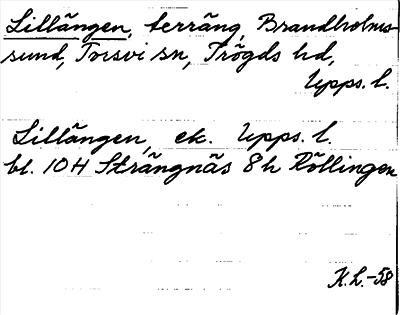 Lillängen, terräng, Brandholms-
sund, Torsvi sn, Trögds hd,
Upps. l.
Lillängen, ek. Upps. l.
bl. 10H Strängnäs 8h Röllingen
K.L.-58